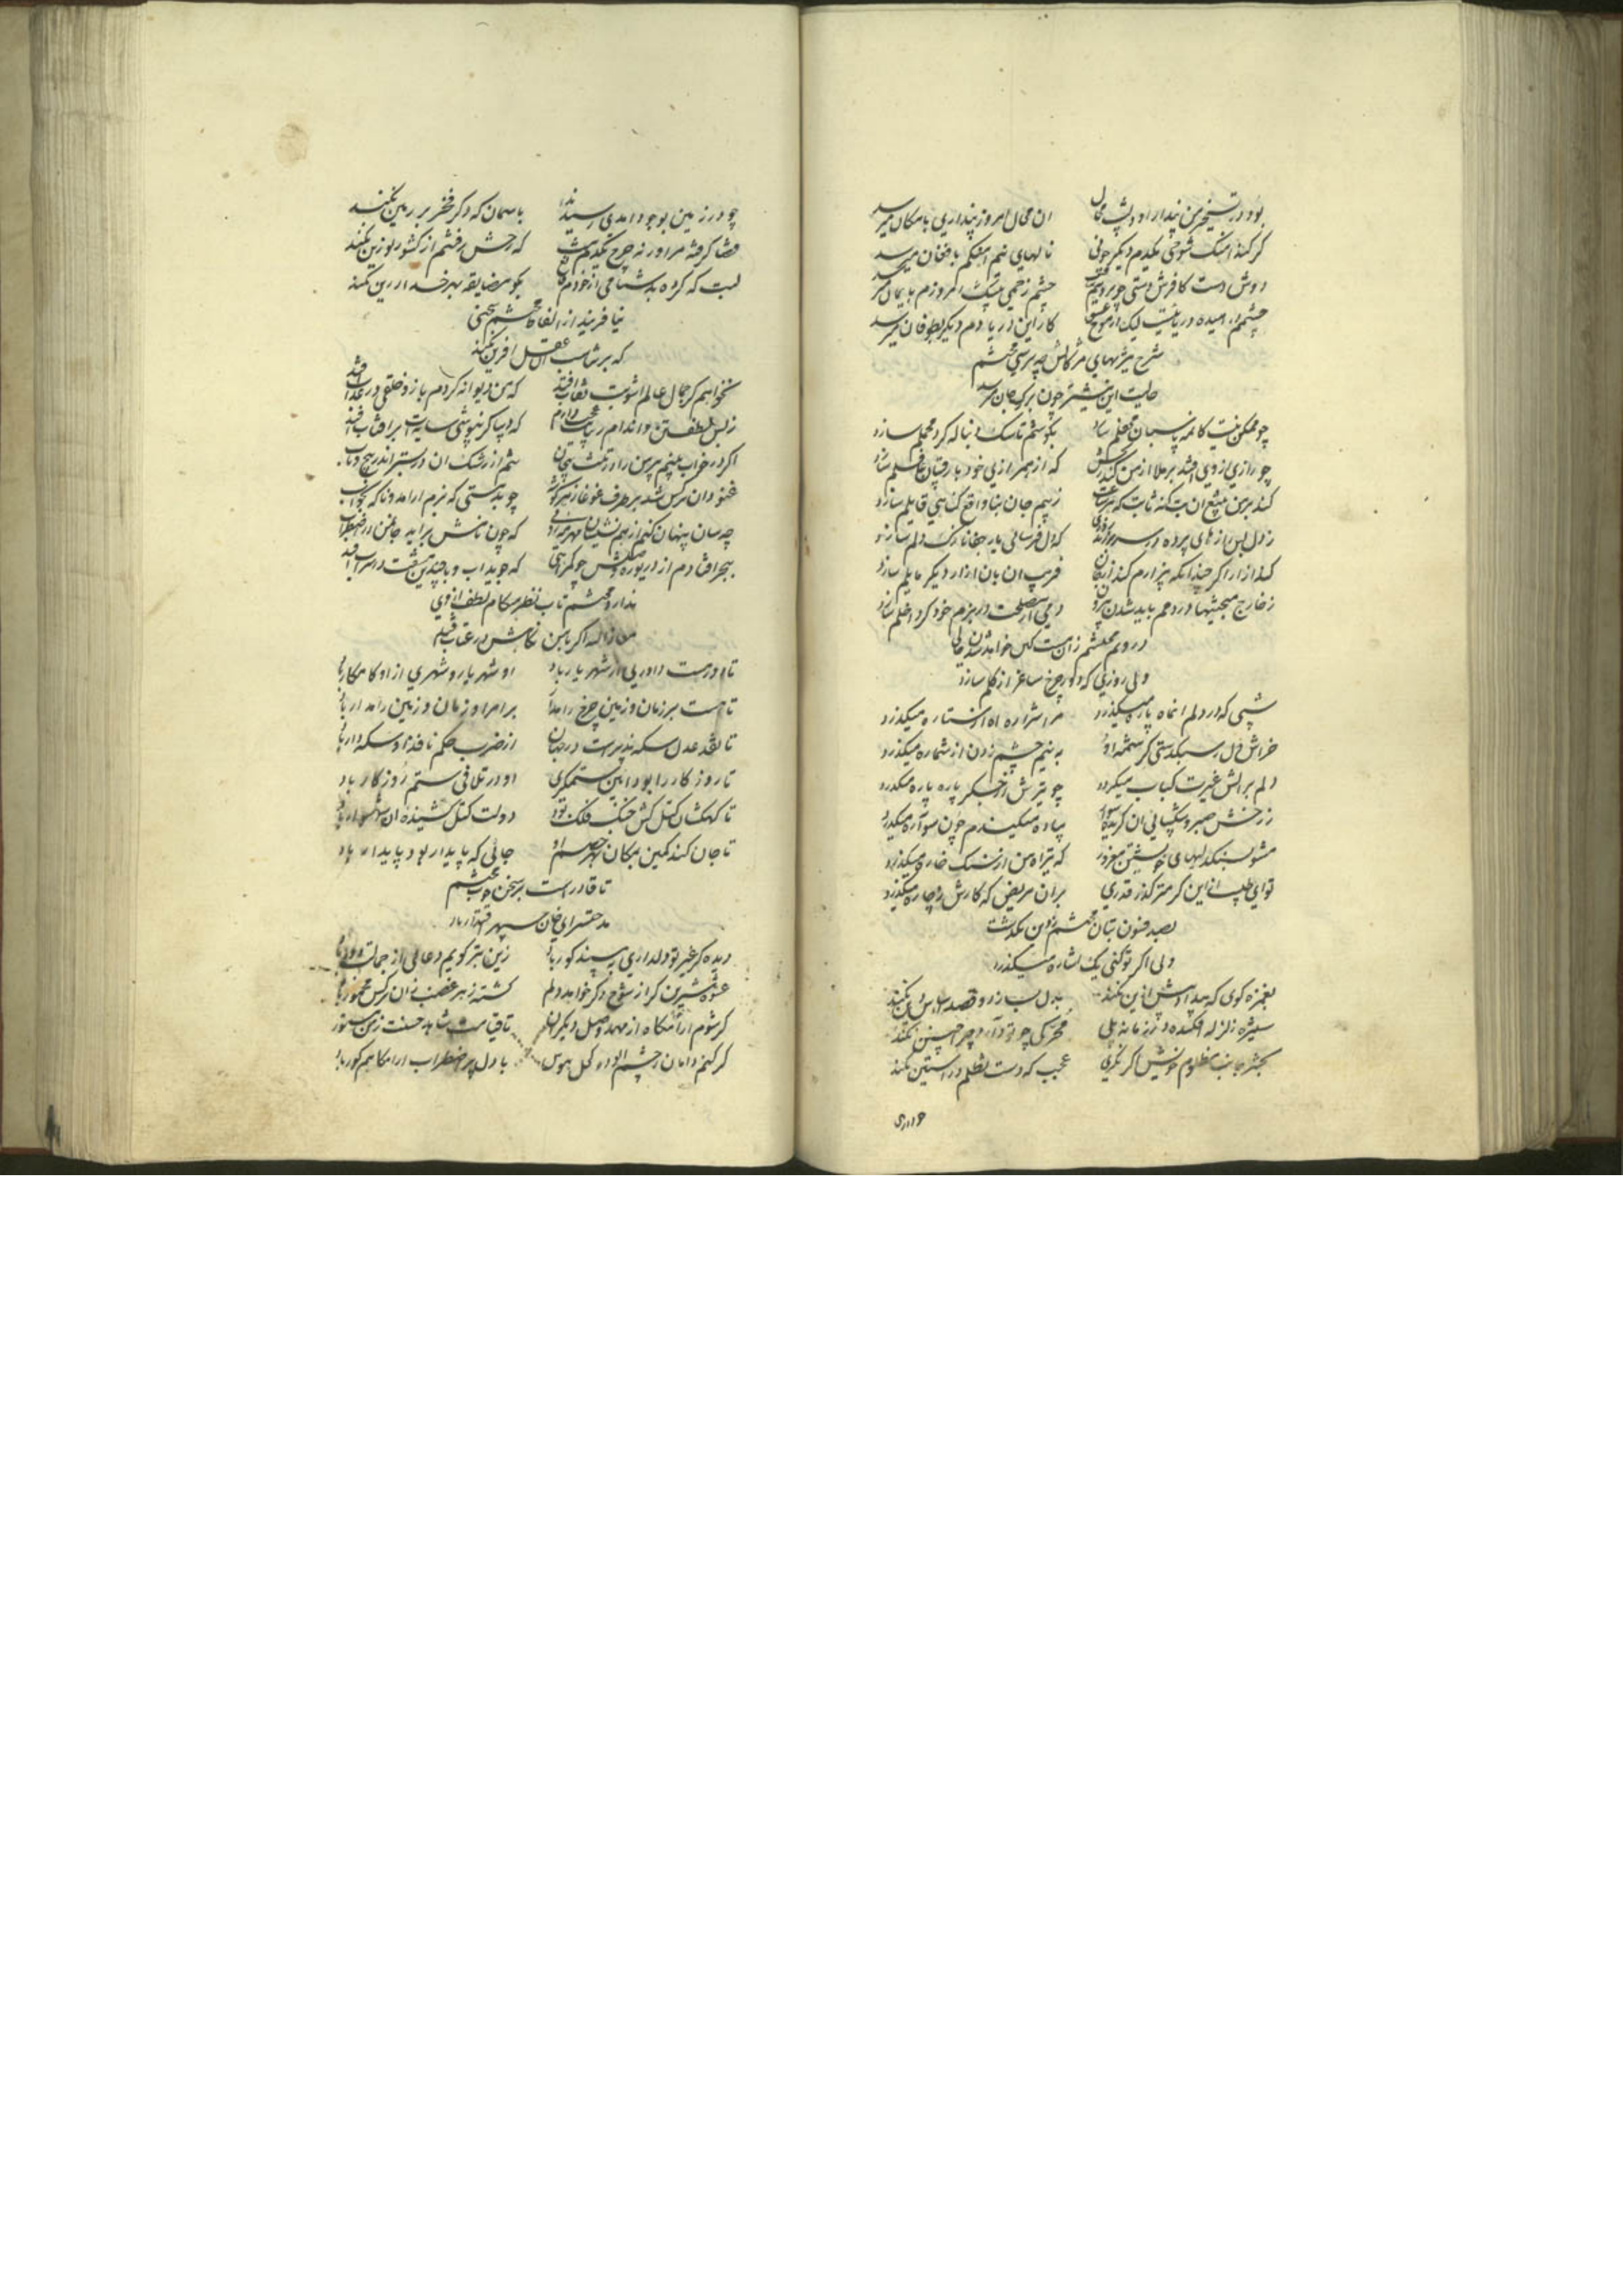 بود در تسخیر من پندار او دیشب محال ان محال امروز پنداری بامکان میرسد
گر کند اهنگ شوخی یکدم دیگر چونی نالهای نیم اهنگم بافغان میرسد
دوش دست کافرش دستی چو بر دینم چشم زخمی بیشک امروزم بایمان میرسد
چشمم ارامیده دریائیست لیک از موج عشق کار این دریا دم دیگر بطوفان میرسد
شرح تیزیهای مژگانش چه پرسی محتشم
حالیت این نیشتر چون بر رگ جان میرسد
چو ممکن نیست کانمه پاسبان محفلم سازد بکوشم تا سک دنباله گرد محملم سازد
چو رازی از وی افتد بر ملا از من کند که از همرازی خود با رقیبان غافلم سازد
کند بر من بتیغ ان بت گنه ثابت که هر ساعت ز بیم جان بنا واقع گناهی قایلم سازد
ز دل بس رازهای پرده در سر بر که دل فرسائی یار جفا نازک دلم سازد
کند ازار اگر چندانکه بیزارم کند از جان فریب ان بازارار دیگر مایلم سازد
ز خارج صحبتیها در دمم باید شدن بیرون دمی از مصلحت در بزم خود گر داخلم سازد
در وبم محتشم زان مست کس خواهد شدن خالی
ولی روزی که دور چرخ ساغر از گلم سازد
شبی که در دلم انماه پاره میگذرد مرا شراره اه از ستاره میگذرد
خراش دل ز سبکدستی کرشمه او به نیم چشم زدن از شماره میگذرد
دلم بر اتش غیرت کباب میگردد چو تیرش از جگر پاره پاره میگذرد
ز رخش صبر و شکیبائی ان گزیده سوار پیاده میکندم چون سواره میگذرد
مشو بسنگدلیهای خویشتن مغرور که تیر اه من از سنگ خاره میگذرد
تو ای طبیب ازین گرمتر گذر قدری بران مریض که کارش ز چاره میگذرد
بصد فنون ز بتان محتشم ز دین نگذشت
ولی اگر تو کنی یک اشاره میگذرد
بغمزه کوی که بیداد بیش ازین نکند بدل بسازد و قصد بلاس دین نکند
ستیزه زلزله افکنده در زمانه بلی محرکی چو تو دارد چرا چنین نکند
بحشر جانب مظلوم خویش اگر نگری عجب که دست تظلم در استین نکند
چو در زمین بوجود امدی رسید ندا باسمان که دگر فخر بر زمین نکند
قضا گرفته مرا ور نه چرخ یکدم نیست که رخش رفتنم از کشور تو زین نکند
لبت که کرده بدشنامی از خودم قانع بگو مضایقه بهر خدا درین نکند
نیافریند از افواه محتشم سخنی
که بر مناسبت ان عقل افرین نکند
نخواهم کز جمال عالم اشوبت نقاب افتد که من دیوانه گردم باز و خلقی در عذاب افتد
ز بس لطف تن و اندام زیبات که دیبا گر بپوشی سایه ات بر افتاب افتد
اگر در خواب بینم پیرهن را در تنت پیچان تنم از رشک ان در بستر اندر پیچ و تاب
غنود ان نرگس و شد بر طرف غوغا ز هر گوشه چو بدمستی که بزم ارامد و ناگه بخواب
چه سان پنهان کنم از همنشینان مهر او که چون نامش براید جان من در اضطراب
ببحر افتادم از دریوزه وصلش چو گمراهی که جوید اب و با چندین مشقت در سراب افتد
ندارد محتشم تاب نظر هنگام لطف از وی
معاذ الله اگر با من نگاهش در عتاب افتد
تا در دست داوری از شهریار باد او شهریار و شهری ازو کامکار باد
تا هست بر زمان و زمین چرخ را مدار بر امر او زمان و زمین را مدار باد
تا نقد عدل سکه پذیرست در جهان از ضرب حکم نافذ او سکه دار باد
تا روزگار را بود ایین ستمگری او در تلافی ستم روزگار باد
تا کهکشان کتل کش خنگ فلک بود دولت کتل کشنده ان شهسوار باد
تا جان کند کمین بمکان بهر جسم او جائی که پایدار بود پایدار باد
تا قادر است بر سخن خوب محتشم
مدحتسرای خان سپهر اقتدار باد
دیده گر غیر تو دلداری بپسندد کور باد زین بتر گویم دعائی از جمالت دور باد
عشوه شیرین گر از شوخ دگر خواهد دلم کشته زهر غضب زان نرگس مخمور باد
گر شوم ارامگاه از مهد وصل دیگران تا قیامت شاهد حسنت ز من مستور
گر کنم دامان چشم الوده کحل هوس با دل پر اضطراب ارامگاهم گور باد